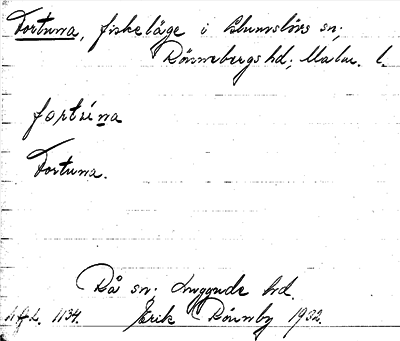 Fortuna, fiskeläge i Glumslövs sn;
Rönnebergs hd; Malm. l.
fortúna
Fortuna.
Rå sn; Luggude hd.
1134. Erik Rönnby 1932.